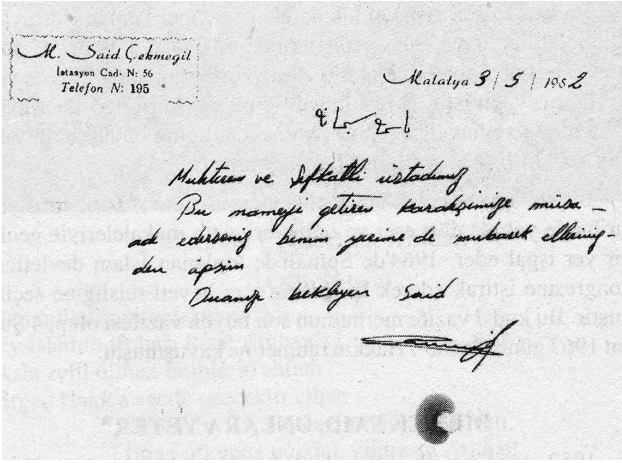 M. Said Çekmegil
İstasyon Cad. N: 56
Telefon N: 195
Malatya 3 / 5 / 1952
Muhterem ve Şefkatli üstadımız
Bu nameyi getiren kardeşimize müsa-
ad ederseniz benim yerime de mubarek elleriniz-
den öpsün
Duanızı bekleyen Said